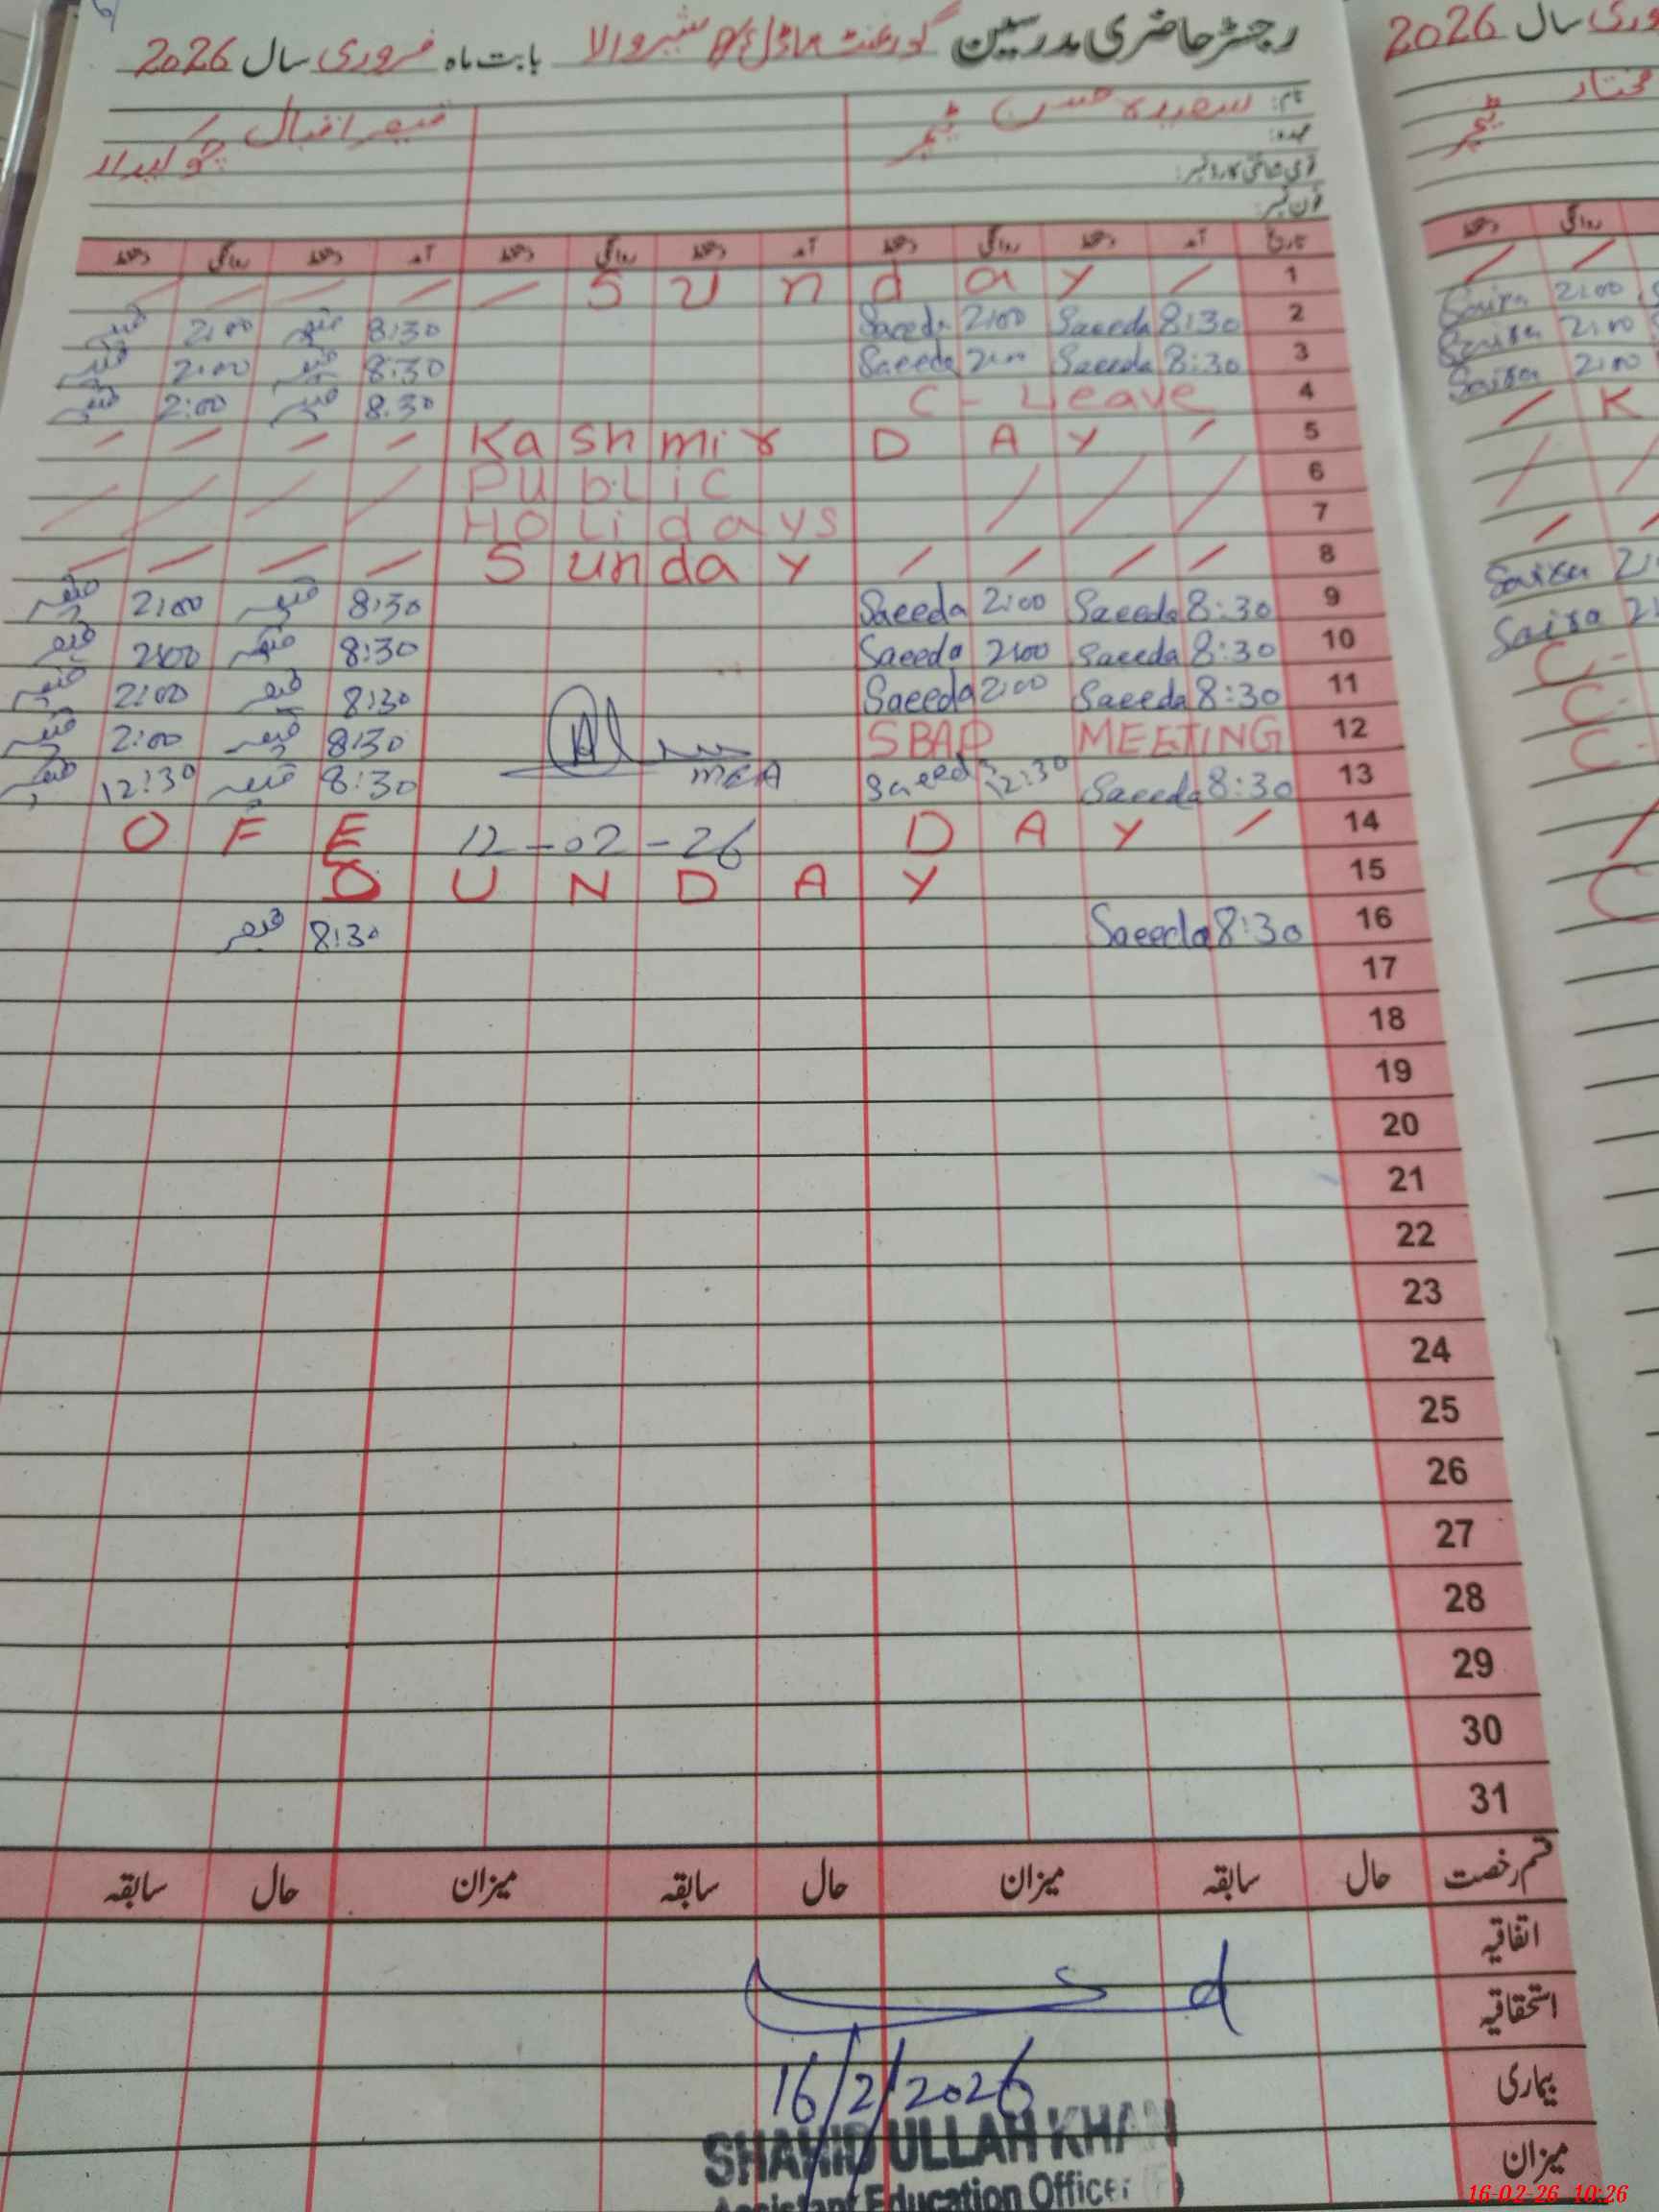 رجسٹر حاضری مدرسین گورنمنٹ ماڈل بابت ماہ فروری سال 2026
سال 2026
نام: سعیدہ حسن ٹیچر قیصر اقبال چوکیدار
عہدہ:
قومی شناختی کارڈ نمبر:
فون نمبر:
مختار
ٹیچر
تاریخ آمد دستخط روانگی دستخط آمد دستخط روانگی دستخط آمد دستخط روانگی دستخط
روانگی دستخط
1 Sunday
2 8:30 Saeeda 2:00 Saeeda 8:30 قیصر 2:00 قیصر
3 8:30 Saeeda 2:00 Saeeda 8:30 قیصر 2:00 قیصر
4 C-Leave 8:30 قیصر 2:00 قیصر
5 Kashmir DAY
6 Public
7 Holidays
8 Sunday
9 8:30 Saeeda 2:00 Saeeda 8:30 قیصر 2:00 قیصر
10 8:30 Saeeda 2:00 Saeeda 8:30 قیصر 2:00 قیصر
11 8:30 Saeeda 2:00 Saeeda 8:30 قیصر 2:00 قیصر
12 MEETING 8:30 قیصر 2:00 قیصر
MEA
13 8:30 Saeeda 12:30 Saeeda 8:30 قیصر 12:30 قیصر
14 OFF DAY
12-02-26
15 SUNDAY
16 8:30 Saeeda 8:30 قیصر
17
18
19
20
21
22
23
24
25
26
27
28
29
30
31
Saira 2:00
Saira 2:00
Saira 2:00
K
Saira
Saira
C-
C-
C-
C
قسم رخصت حال سابقہ میزان حال سابقہ میزان حال سابقہ
اتفاقیہ
استحقاقیہ
بیماری
میزان
16/2/2026
SHAHID ULLAH KHAN
Assistant Education Officer (F)
16-02-26 10:26